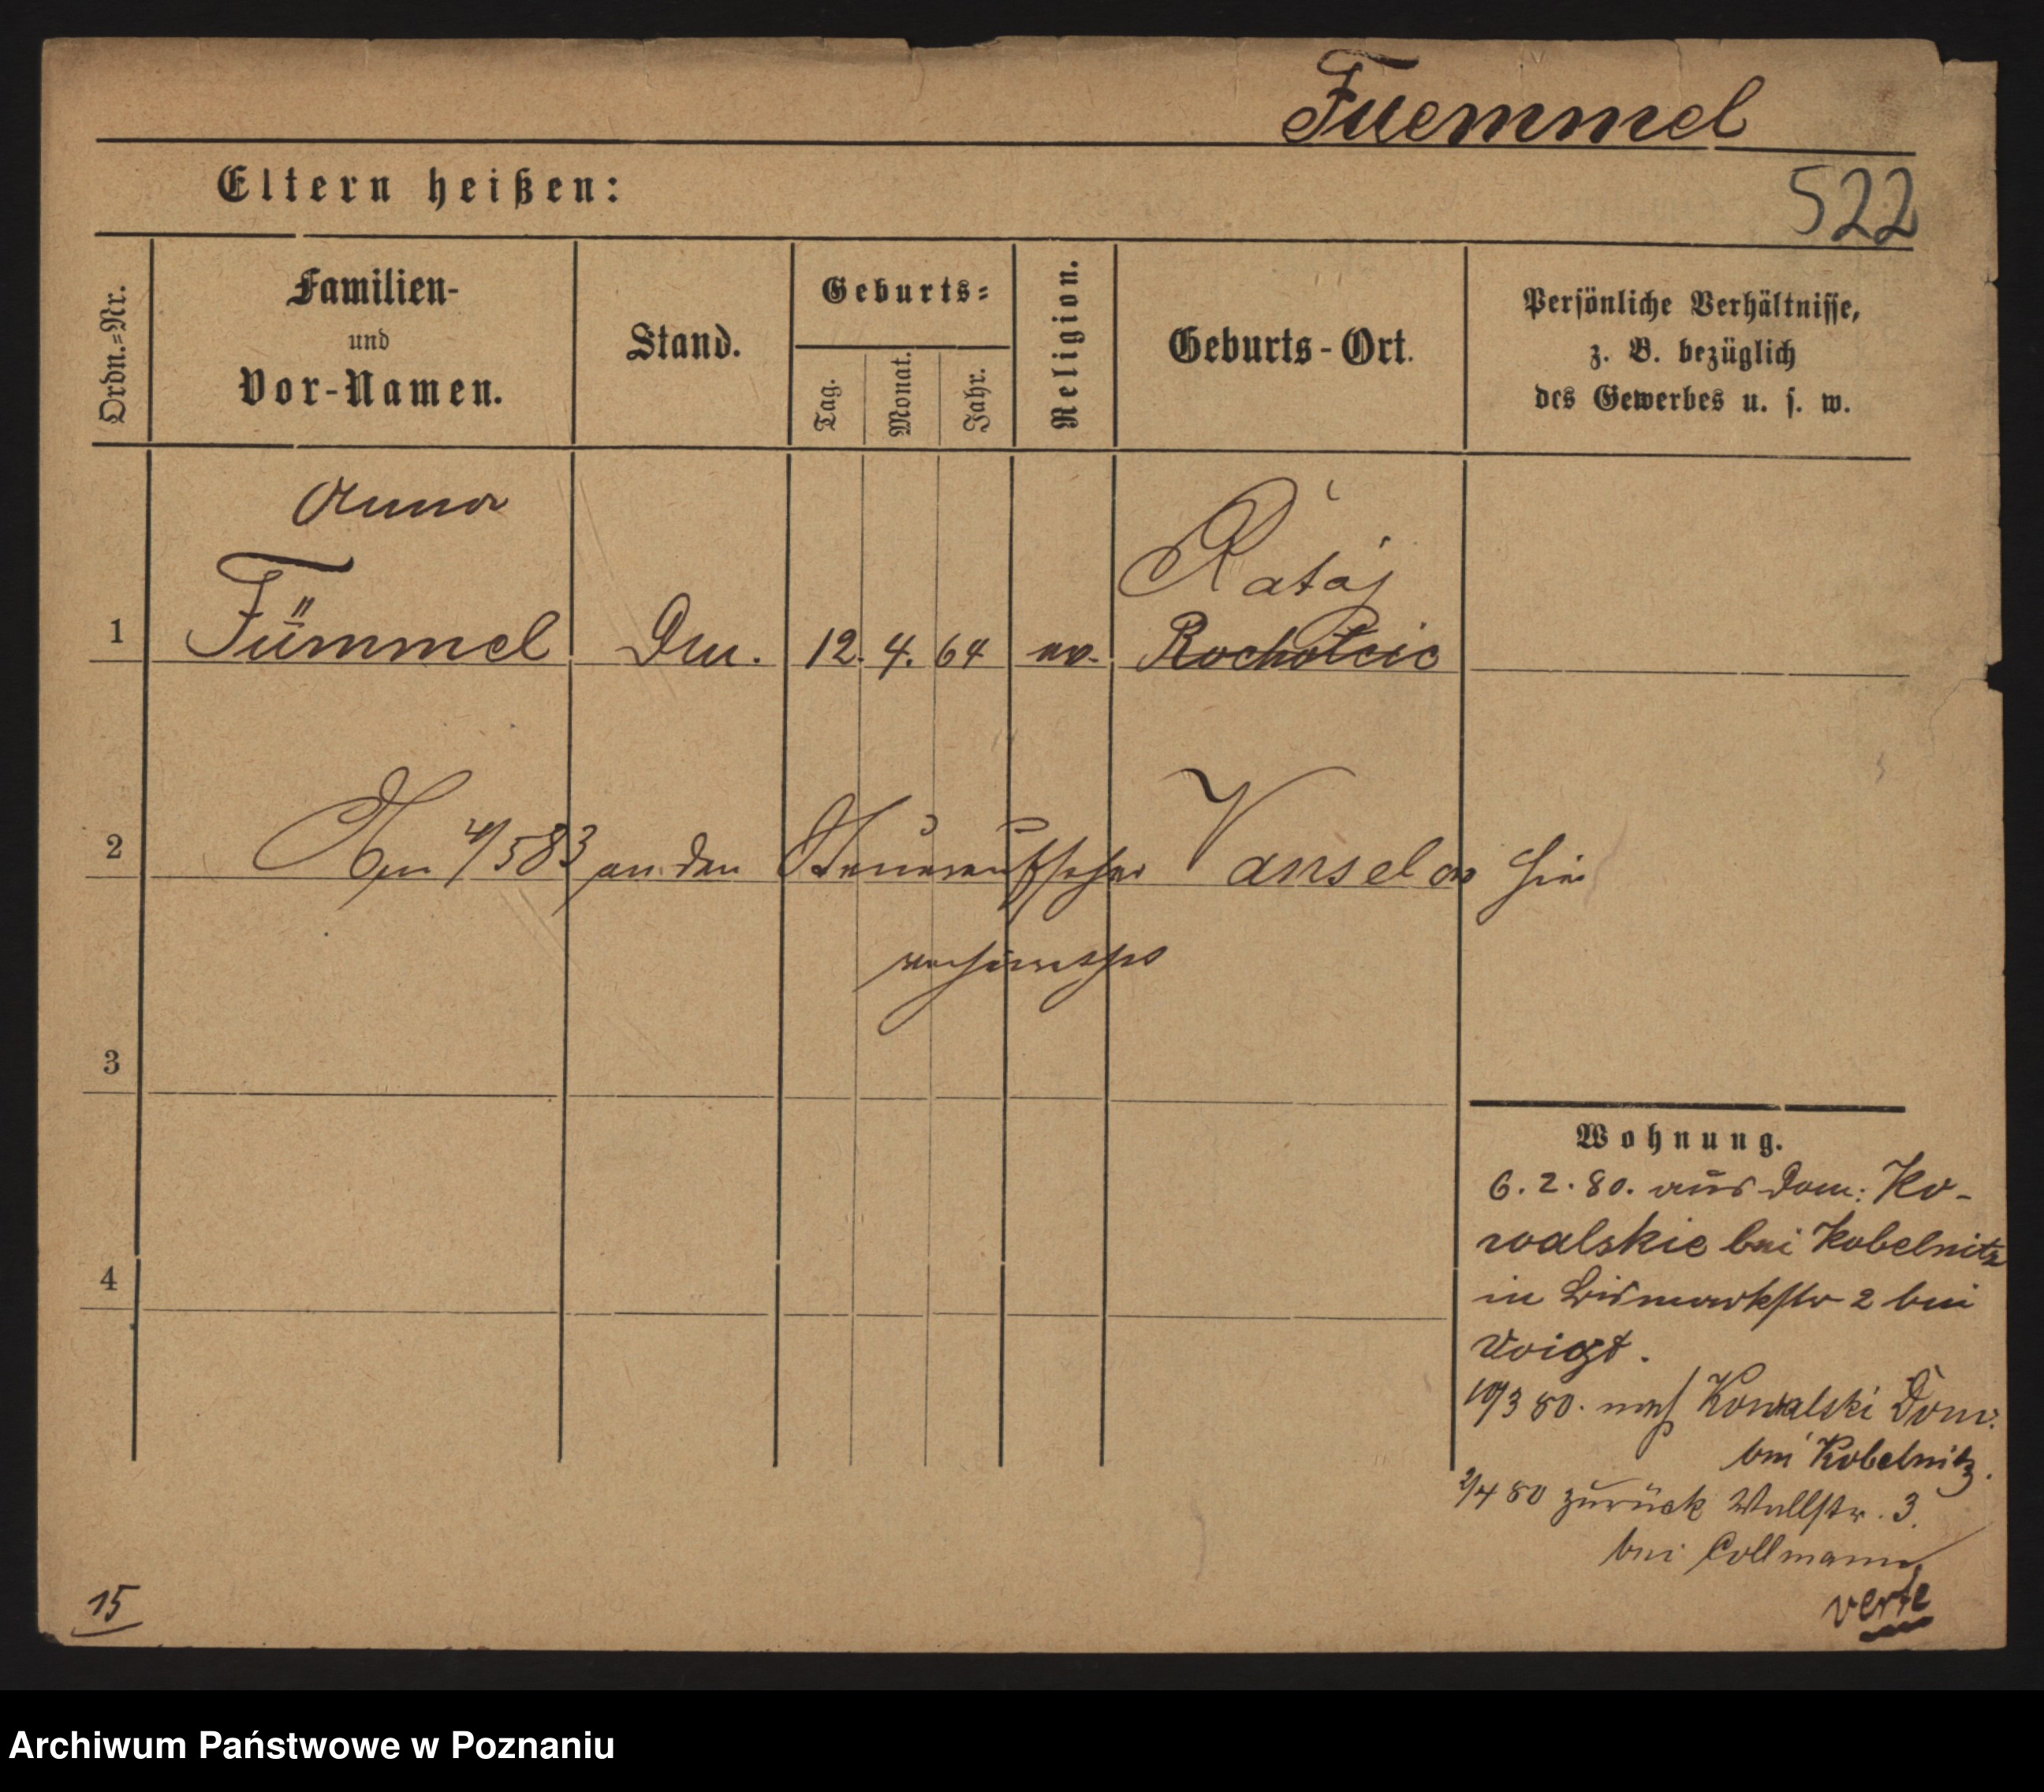 Fuemmel
522
Eltern heißen:
Ordn.=Nr.
Familien-
und
Vor-Namen.
Stand.
Geburts=
Tag.
Monat.
Jahr.
Religion.
Geburts-Ort.
Persönliche Verhältnisse,
z. B. bezüglich
des Gewerbes u. s. w.
Anna
Rataj
1 Fümmel 12. 4. 64 ev.
2 4/5 83 an den Steueraufseher Vanselow hier
verheirathet
3
4
Wohnung.
6. 2. 80. aus Dom: Ko-
walskie bei Kobelnitz
in Bismarkstr 2 bei
Voigt.
10/3 80. nach Kowalski Dom.
bei Kobelnitz.
2/4 80 zurück Wallstr. 3.
bei Collmann
verte
15
Archiwum Państwowe w Poznaniu